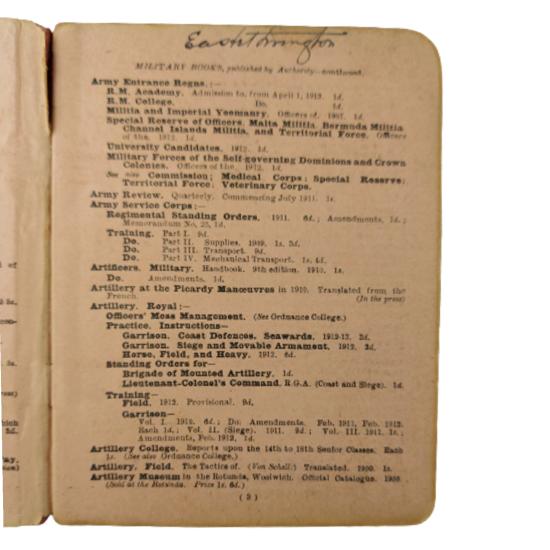 MILITARY BOOKS, published by Authority—continued.
Army Entrance Regns.:—
R.M. Academy. Admission to, from April 1, 1913. 1d.
R.M. College. Do. 1d.
Militia and Imperial Yeomanry. Officers of. 1907. 1d.
Special Reserve of Officers, Malta Militia, Bermuda Militia
Channel Islands Militia, and Territorial Force. Officers
of the. 1912. 1d.
University Candidates. 1912. 1d.
Military Forces of the Self-governing Dominions and Crown
Colonies. Officers of the. 1912. 1d.
See also Commission; Medical Corps; Special Reserve;
Territorial Force; Veterinary Corps.
Army Review. Quarterly. Commencing July 1911. 1s.
Army Service Corps:—
Regimental Standing Orders. 1911. 6d.; Amendments, 1d.;
Memorandum No. 25, 1d.
Training. Part I. 9d.
Do. Part II. Supplies. 1909. 1s. 3d.
Do. Part III. Transport. 9d.
Do. Part IV. Mechanical Transport. 1s. 4d.
Artificers, Military. Handbook. 9th edition. 1910. 1s.
Do. Amendments. 1d.
Artillery at the Picardy Manœuvres in 1910. Translated from the
French. (In the press)
Artillery, Royal:—
Officers' Mess Management. (See Ordnance College.)
Practice, Instructions—
Garrison. Coast Defences, Seawards. 1912-13. 3d.
Garrison. Siege and Movable Armament. 1912. 3d.
Horse, Field, and Heavy. 1912. 6d.
Standing Orders for—
Brigade of Mounted Artillery. 1d.
Lieutenant-Colonel's Command, R.G.A. (Coast and Siege). 1d.
Training—
Field. 1912. Provisional. 9d.
Garrison—
Vol. I. 1910. 6d.; Do. Amendments. Feb. 1911, Feb. 1912.
Each 1d.; Vol. II. (Siege). 1911. 9d.; Vol. III. 1911. 1s.;
Amendments, Feb. 1912, 1d.
Artillery College. Reports upon the 14th to 18th Senior Classes. Each
1s. (See also Ordnance College.)
Artillery, Field. The Tactics of. (Von Schell.) Translated. 1900. 1s.
Artillery Museum in the Rotunda, Woolwich. Official Catalogue. 1906.
(Sold at the Rotunda. Price 1s. 6d.)
( 3 )